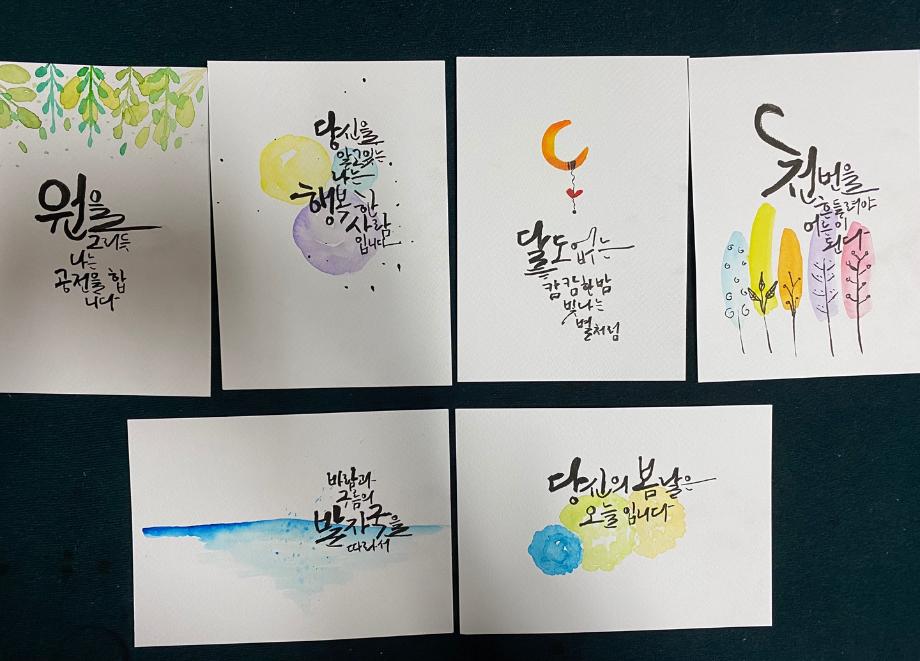 원을
그리듯
나는
공전을 합
니다
당신을
알고있는
나는
행복한
사람
입니다
달도 없는
캄캄한밤
빛나는
별처럼
천번을
흔들려야
어른이
된다
바람과
구름의
발자국을
따라서
당신의 봄날은
오늘입니다